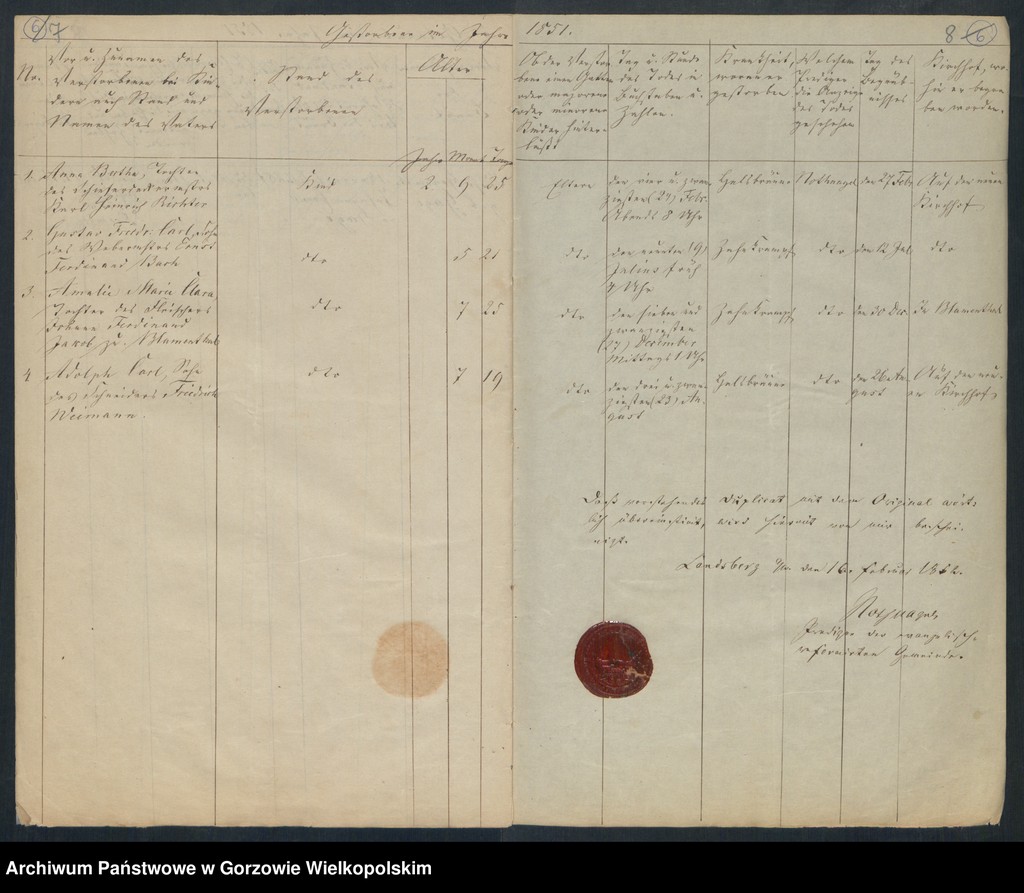 6 7
Gestorbene im Jahre 1851.
8 6
Nr.
Vor u. Zunamen des
Verstorbenen bei Kin-
dern auch Stand und
Namen des Vaters
Stand des
Verstorbenen
Alter
Jahre Monat Tage
Ob der Verstor-
bene einen Gatten
oder majorenne
oder minorenne
Kinder hinter-
läßt
Tag u. Stunde
des Todes in
Buchstaben u.
Zahlen.
Krankheit,
woran er
gestorben
Welchem
Prediger
die Anzeige
des Todes
geschehen
Tag des
Begräb-
nisses
Kirchhof, wo-
hin er begra-
ben worden.
1. Anna Bertha, Tochter
des Schieferdeckermstrs
Karl Heinrich Richter
Kind
2 9 25
Eltern
der vier u. zwan-
zigsten (24) Febr.
Abends 8 Uhr
Halsbräune
Nothnagel
den 27 Febr.
Auf der neuen
Kirchhof
2. Gustav Friedr. Carl, Sohn
des Webermstrs Ernst
Ferdinand
dto
5 21
dto
den neunten (9)
Julius früh
Uhr
Zahnkrampf
dto
den 12 Jul.
dto
3. Amalie Marie Clara,
Tochter des Fleischers
Ferdinand
Jakob zu Blumenthal
dto
7 25
dto
den sieben und
zwanzigsten
(27) Dezember
Mittags 1 Uhr
Zahnkrampf
dto
den 30 Dez.
In Blumenthal
4 Adolph Carl, Sohn
des Schneiders Friedrich
Weimann.
dto
7 19
dto
der drei u. zwan-
zigsten (23) Au-
gust
Halsbräune
dto
den 26 Au-
gust
Auf der neu-
en Kirchhof
Daß vorstehendes Duplicat mit dem Original wört-
lich übereinstimt, wird hiermit von mir beschei-
nigt.
Landsberg a/W. den 16. Februar 1852.
Nothnagel
Prediger der evangelisch-
reformirten Gemeinde.
Archiwum Państwowe w Gorzowie Wielkopolskim